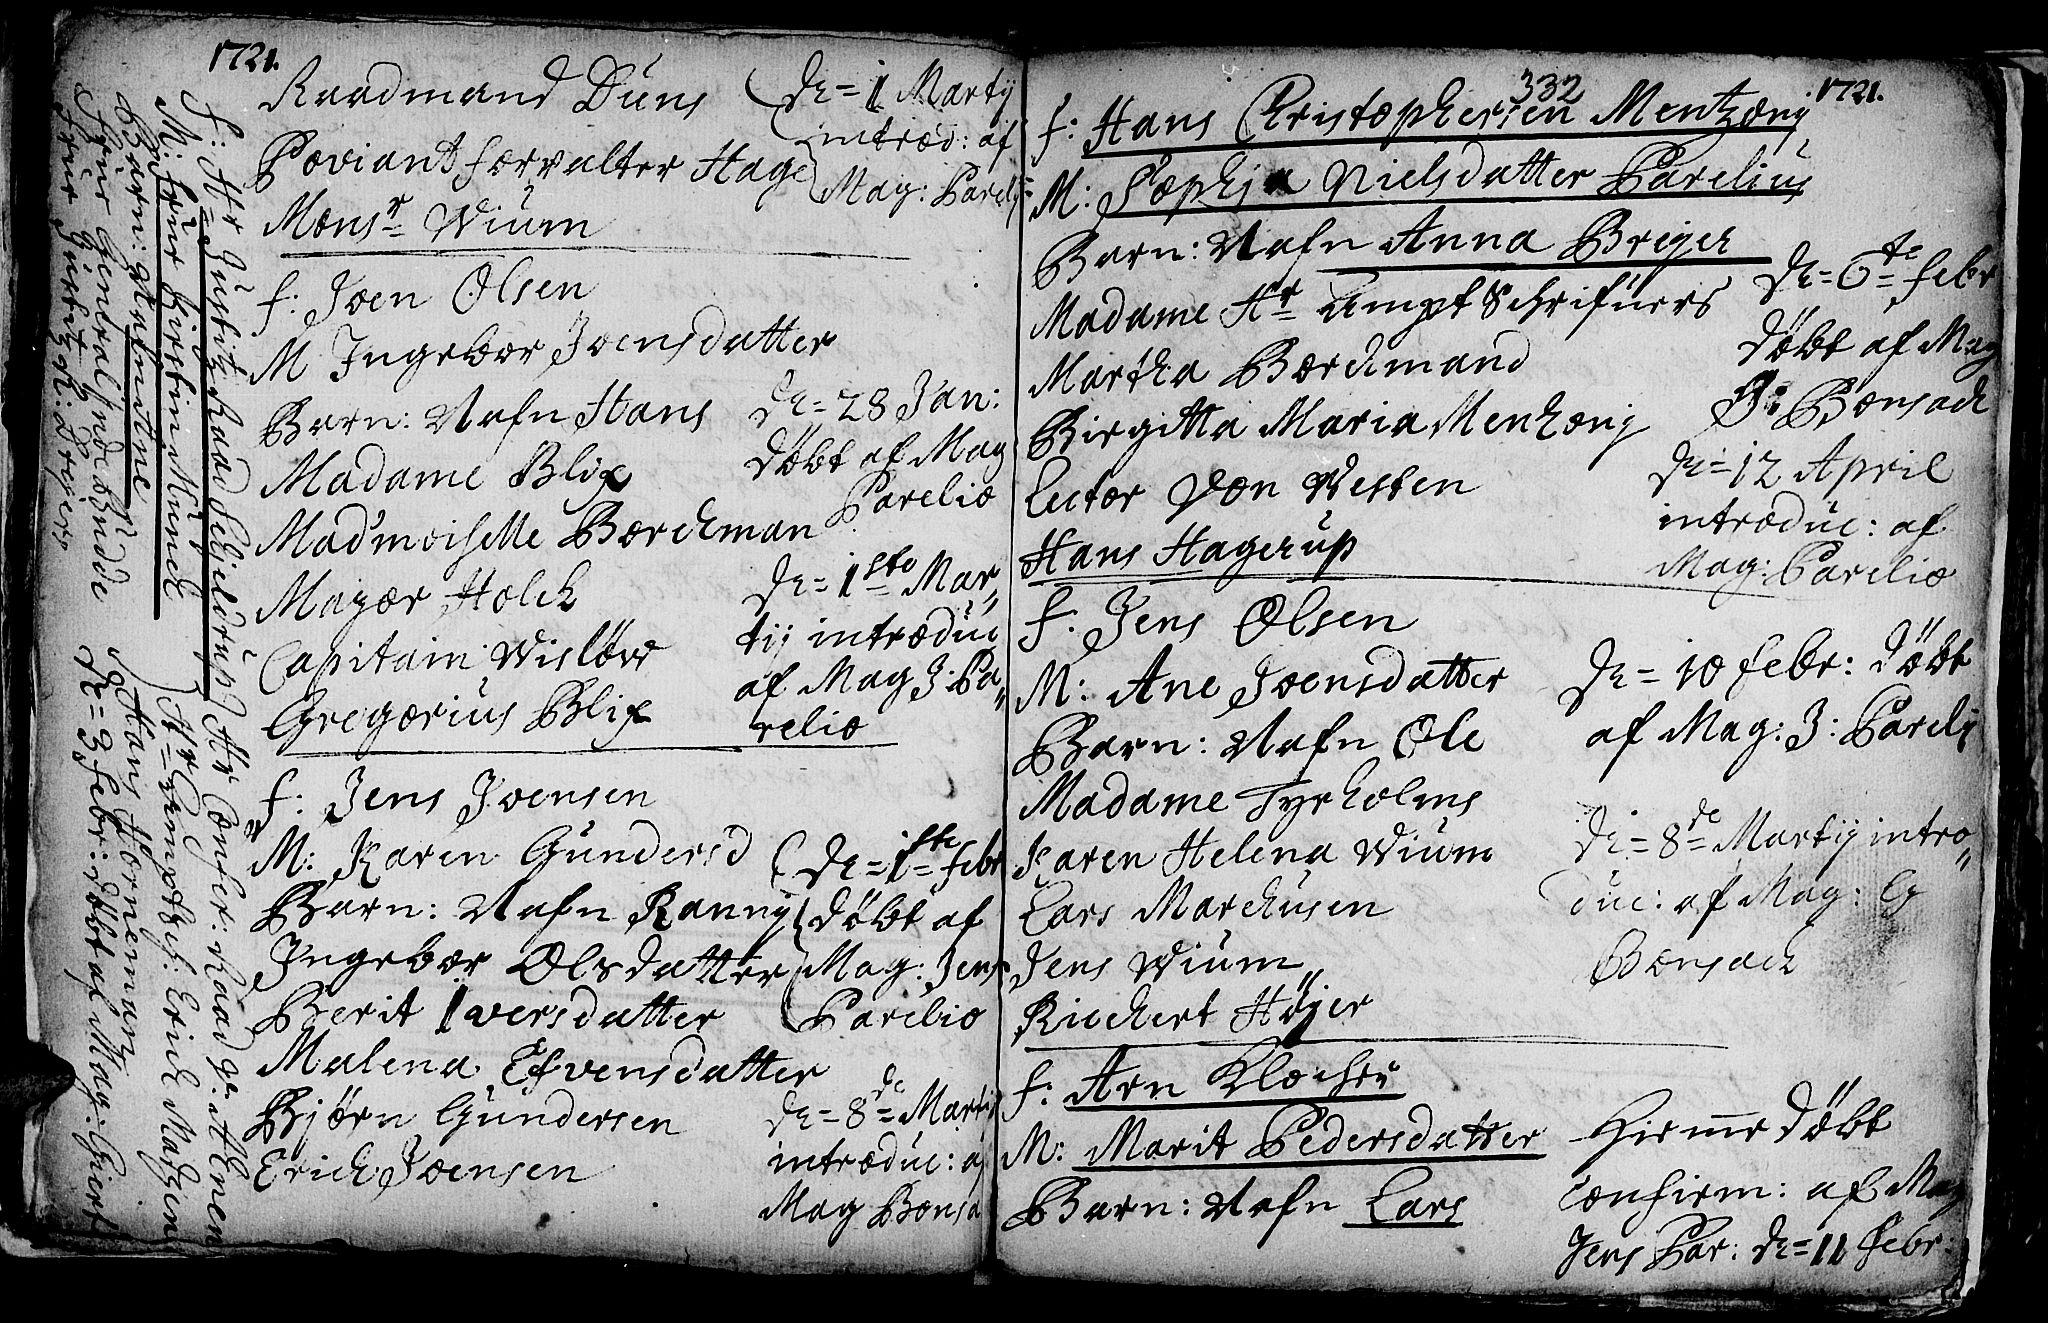 1721.
Raadmand Duns
Poviant forvalter Hage
Monsr Wium
de = 1 Martij
introd: af
Mag: Pareli
f: Joen Olsen
M Ingebor Joensdatter
Barn: Nafn Hans
Madame Blix
Mad'moiselle Borchman
Major Holck
Capitain Wislöw
Gregorius Blix
de = 28 Jan:
döbt af Mag
Parelio
de = 1ste Mar„
tij introduc
af Mag J: Pa„
relio
f: Jens Joensen
M: Karen Gundersd
Barn: Nafn Ranny
Ingebor Olsdatter
Berit Iversdatter
Malena Efvensdatter
Bjørn Gundersen
Erich Joensen
de = 1ste febr
döbt af
Mag: Jens
Parelio
de = 8de Martij
introduc: af
Mag Bonsa
f: Hr Justitz Raad Schieldrup
M: frue Kirstin Munch
Barn: 
frue General
frue Justitz R: Dreyers
Hr Confer: Raad
Hr = Erich Matzen
Hans Hornemann
de = 3 febr: döbt af Mag:
332
1721.
f: Hans Christophersen Mentzonij
M: Sophja Nielsdatter Parelius
Barn: Nafn Anna Breger
Madame Hr Ampt Schrifuers
Martha Borchmand
Birgitta Maria Menzonij
Lector Von Westen
Hans Hagerup
de = 6te febr
döbt af Mag
J: Bonsach
de = 12 April
introduc: af
Mag: Parelio
f: Jens Olsen
M: Ane Joensdatter
Barn: Nafn Ole
Madame Tyrholms
Karen Helena Wium
Lars Marchusen
Jens Wium
Richert Höjer
de = 10 febr: döbt
af Mag: J: Parelij
de = 8de Martij intro„
duc: af Mag: 
Bonsach
f: Arn Klocher
M: Marit Pedersdatter
Barn: Nafn Lars
Hiemme döbt
confirm: af Mag
Jens Par: de = 11 febr: